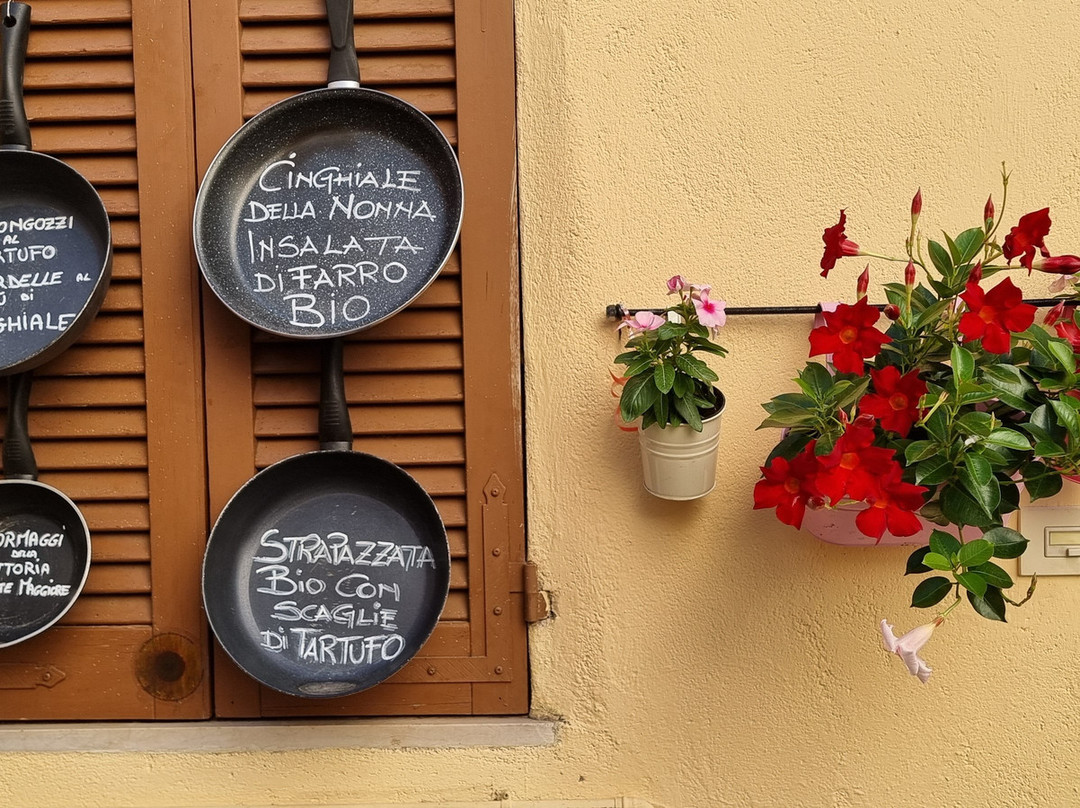 ONGOZZI
AL
RTUFO
RDELLE AL
Ù DI
GHIALE
CINGHIALE
DELLA NONNA
INSALATA
DI FARRO
BIO
ORMAGGI
DELLA
TTORIA
TE MAGGIORE
STRAPAZZATA
BIO CON
SCAGLIE
DI TARTUFO